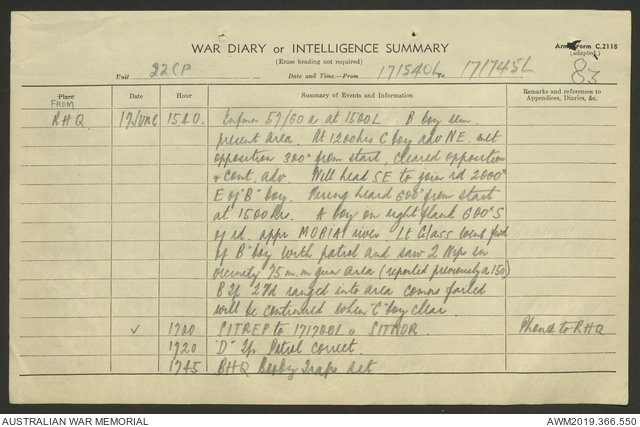 WAR DIARY or INTELLIGENCE SUMMARY
(Erase heading not required)
Army Form C.2118
(adapted)
83
Unit 22 CP Date and Time.—From 171540L To 171745L
Place Date Hour Summary of Events and Information Remarks and references to Appendices, Diaries, &c.
FROM
RHQ 17 June 1540. 57/60 a at 1500L B Coy
present area. At 1200hrs C Coy adv NE. met
opposition 300ˣ from start, cleared opposition
+ cont. adv. Will head SE to join rd 2000ˣ
E of "B" Coy. Firing heard 600ˣ from start
at 1500hrs. A Coy on right flank 600ˣ S
of rd. appr MOBIA river. Lt Glass went fwd
of B" Coy with patrol and saw 2 Nips in
vicinity 75 m.m gun area (reported previously a 150)
B Tp 2 Fd ranged into area comns failed
will be continued when "C" Coy clear.
✓ 1700 SITREP to 171700L a SITROR. Phoned to RHQ
1720 "D" Tp Patrol correct.
1745 BHQ Booby Traps set
AUSTRALIAN WAR MEMORIAL
AWM2019.366.550